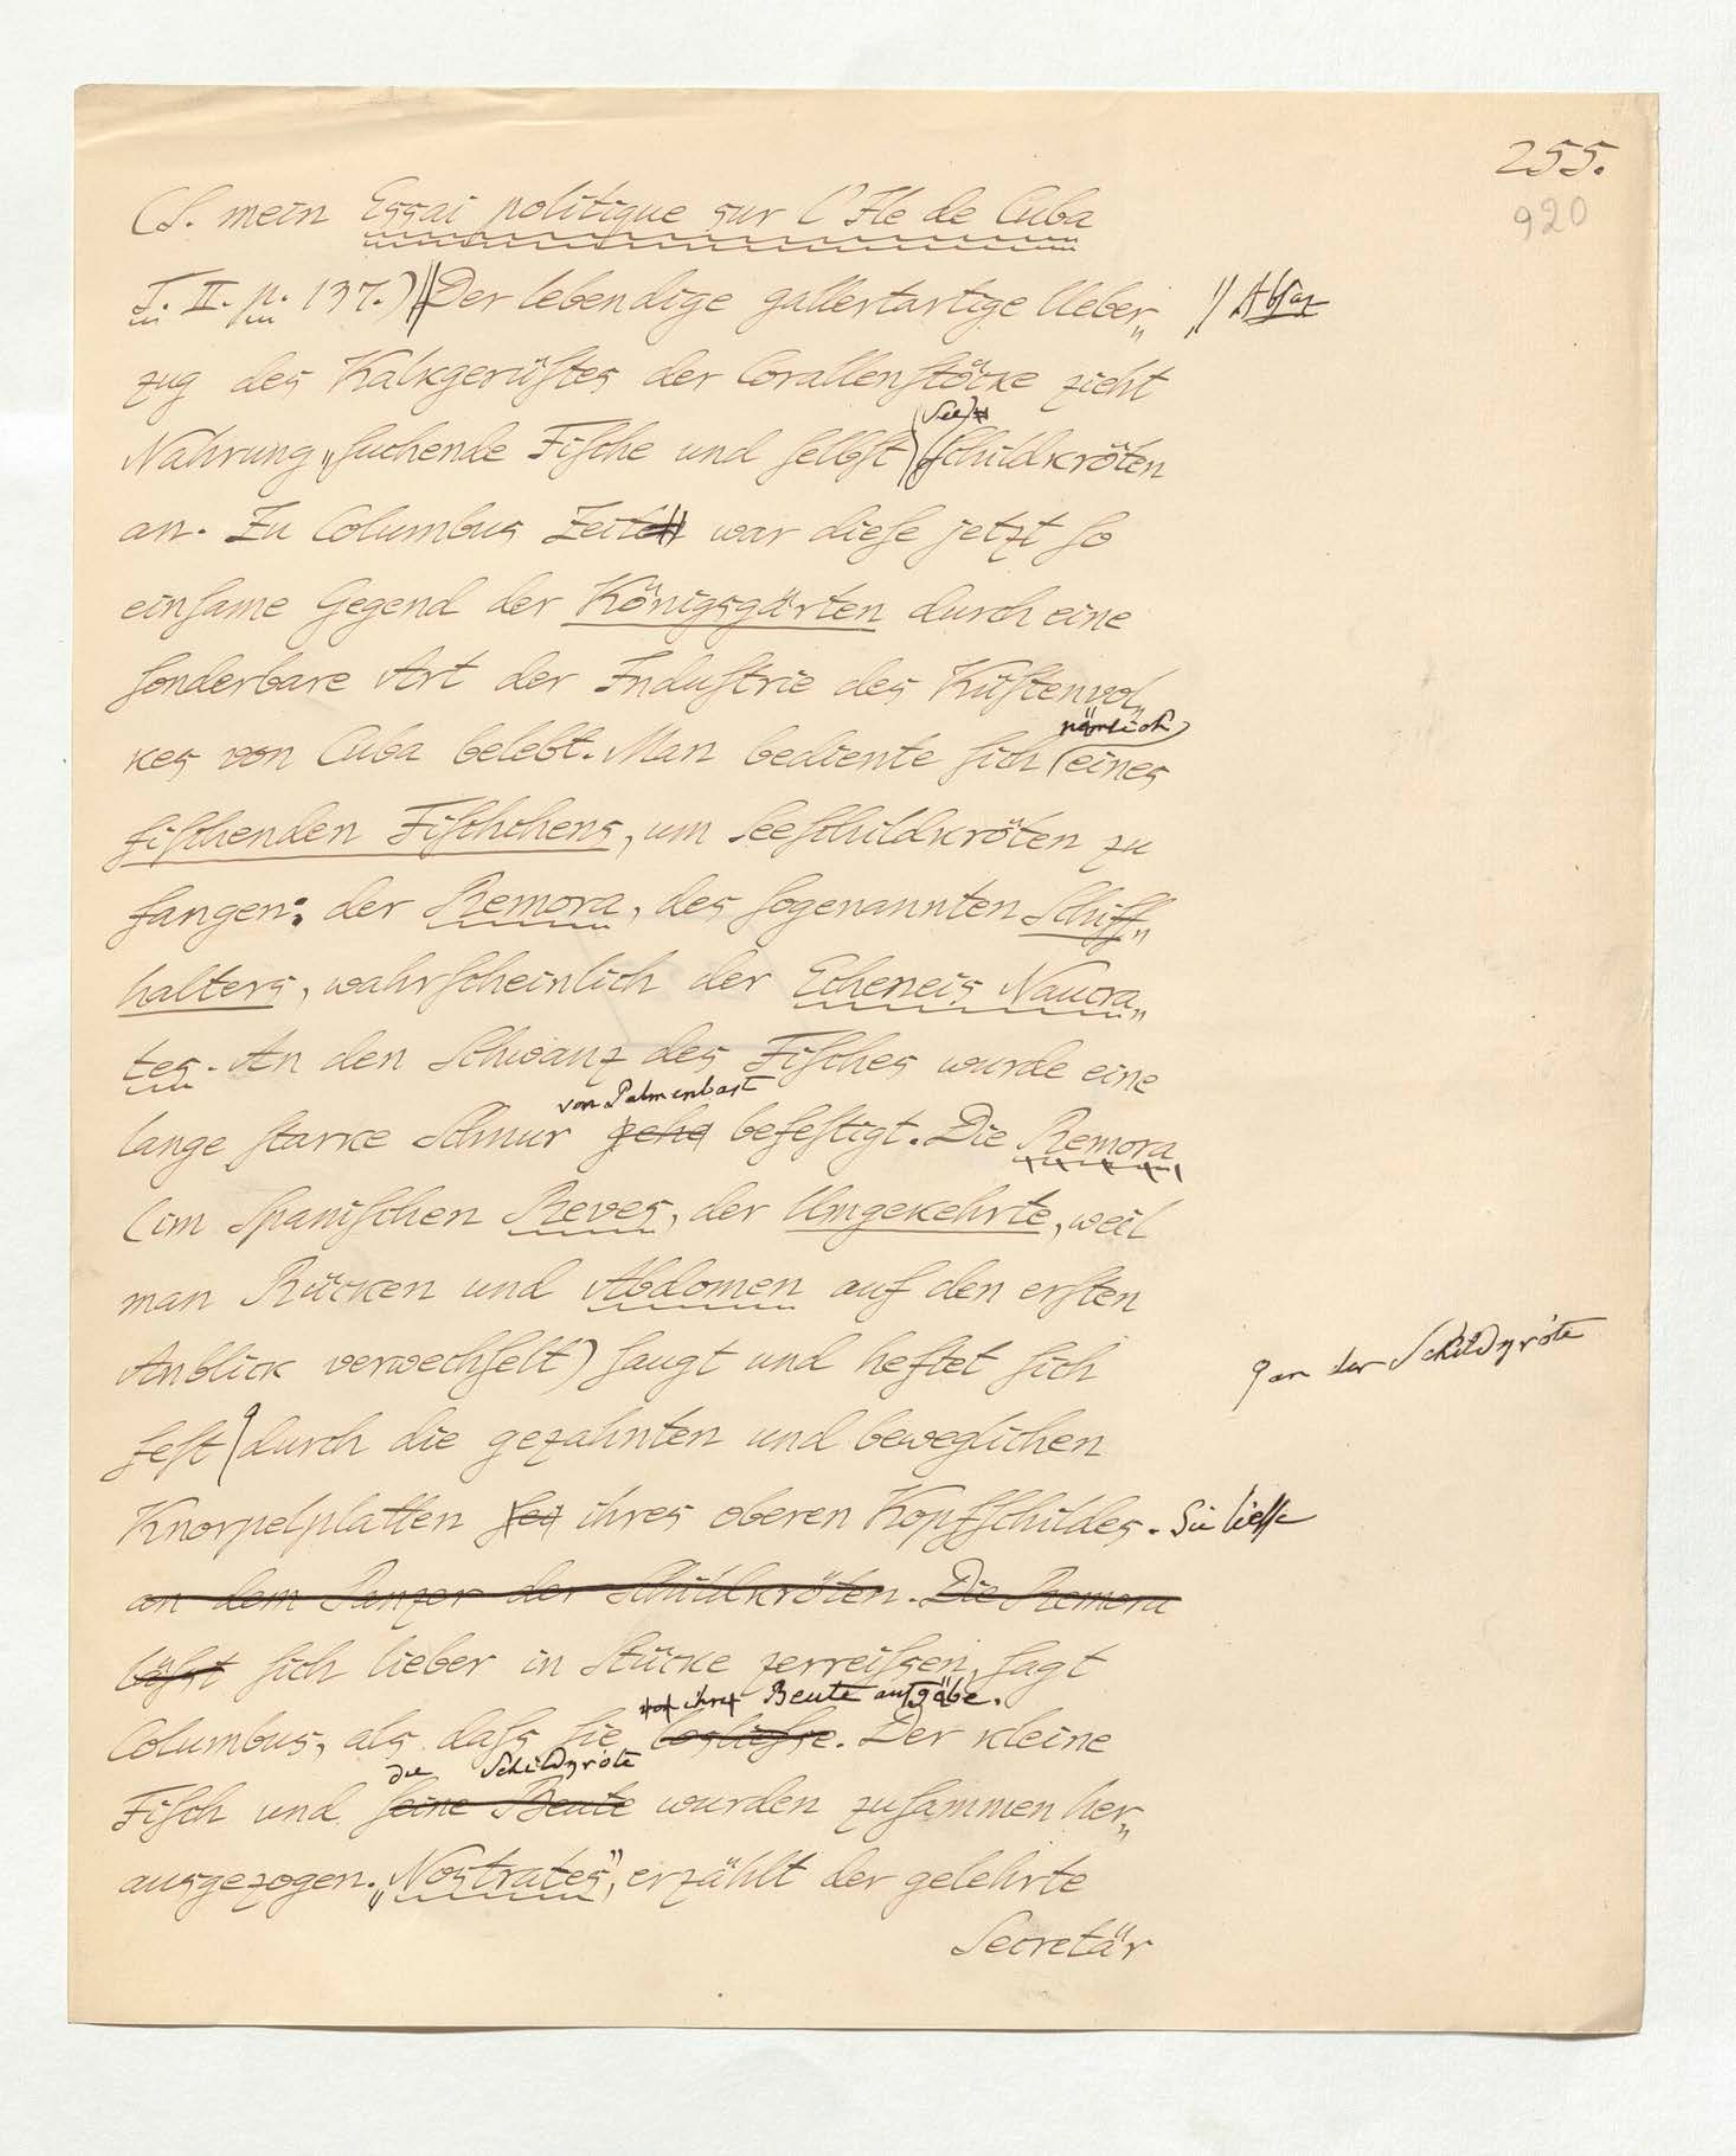 255.
920
(S. mein Essai politique sur l'Ile de Cuba
T. II. p. 137.) || Der lebendige gallertartige Ueber„ // Absaz
zug des Kalkgerüſtes der Corallenſtöcke zieht
See
Nahrung„ſuchende Fiſche und ſelbſt ſchildkröten
an. Zu Columbus Zeiten war dieſe jetzt ſo
einſame Gegend der Königsgärten durch eine
ſonderbare Art der Induſtrie des Küſtenvol„
nämlich
kes von Cuba belebt. Man bediente ſich eines
fiſchenden Fiſchchens, um Seeſchildkröten zu
fangen: der Remora, des ſogenannten Schiff„
halters, wahrſcheinlich der Echeneis Naucra„
tes. An den Schwanz des Fiſches wurde eine
von Palmenbast
lange ſtarke Schnur befeſtigt. Die Remora
(im Spaniſchen Reves, der Umgekehrte, weil
man Rücken und Abdomen auf den erſten
Anblick verwechſelt) ſaugt und heftet ſich
an der Schildkröte
feſt durch die gezahnten und beweglichen
Knorpelplatten ihres oberen Kopfſchildes. Sie ließe
an dem Panzer der Schildkröten. Die Remora
läſst ſich lieber in Stücke zerreiſsen, ſagt
ihre Beute aufgäbe.
Columbus, als daſs ſie losließe. Der kleine
die Schildkröte
Fiſch und ſeine Beute wurden zuſammen her„
ausgezogen. „Nostrates", erzählt der gelehrte
Secretär